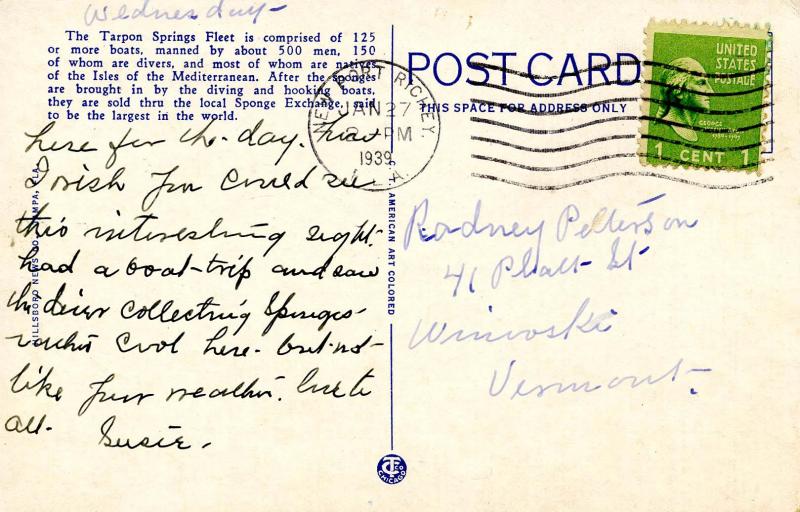 Wednesday-
The Tarpon Springs Fleet is comprised of 125
or more boats, manned by about 500 men, 150
of whom are divers, and most of whom are natives
of the Isles of the Mediterranean. After the sponges
are brought in by the diving and hooking boats,
they are sold thru the local Sponge Exchange, said
to be the largest in the world.
here for the day. how
I wish you could see
this interesting sight.
had a boat-trip and saw
the diver collecting sponges-
rather cool here- but not
like your weather. love to
all. Susie.
HILLSBORO NEWS CO., TAMPA, FLA.
C. T. AMERICAN ART COLORED
POST CARD
THIS SPACE FOR ADDRESS ONLY
NEW PORT RICHEY,
JAN 27
2 PM
1939
UNITED
STATES
POSTAGE
GEORGE
WASHINGTON
1 CENT 1
Rodney Petterson
41 Platt St
Winooski
Vermont.
CT CO
CHICAGO